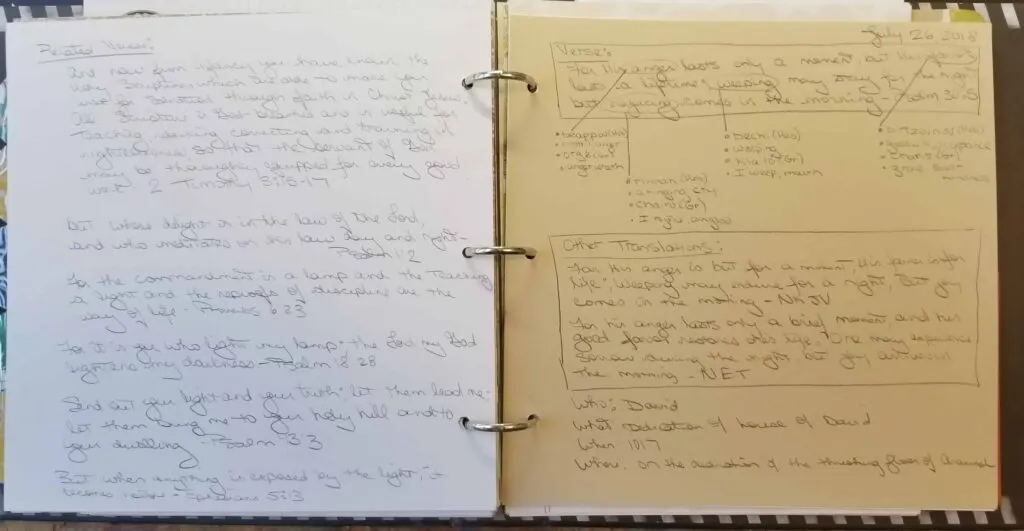 Related Verses:
And now from infancy you have known the
Holy Scriptures which are able to make you
wise for salvation through faith in Christ Jesus.
All Scripture is God breathed and is useful for
teaching, rebuking correcting and training in
righteousness, so that the servant of God
may be thoroughly equipped for every good
work 2 Timothy
but whose delight is in the law of the Lord,
and who meditates on his law day and night -
Psalm 1:2
For the commandment is a lamp and the teaching
a light and the reproofs of discipline are the
way of life - Proverbs 6:23
For it is you who light my lamp the Lord my God
my darkness - Psalm 18:28
Send out your light and your truth; let them lead me
let them bring me to your holy hill and to
your dwelling - Psalm
But when anything is exposed by the light, it
becomes - Ephesians 5:13
July 26 2018
Verses:
For His anger lasts only a moment, but His
lasts a lifetime; weeping may stay for the night
but rejoicing comes in the morning - Psalm 30:5
• (Heb)
• (Gr)
• anger wrath
• (Heb)
• a ringing cry
• (Gr)
• I
• (Heb)
• weeping
• (Gr)
• I weep, mourn
• (Heb)
• (Gr)
• grace
kindness
Other Translations:
For His anger is but for a moment, His favor is for
life; weeping may endure for a night, but joy
comes in the morning - NKJV
For his anger lasts only a brief moment, and his
good favor restores one's life. One may experience
sorrow during the night but joy arrives in
the morning - NET
Who: David
What Dedication of house of David
When 1017
Where: on the dedication of the threshing floor of